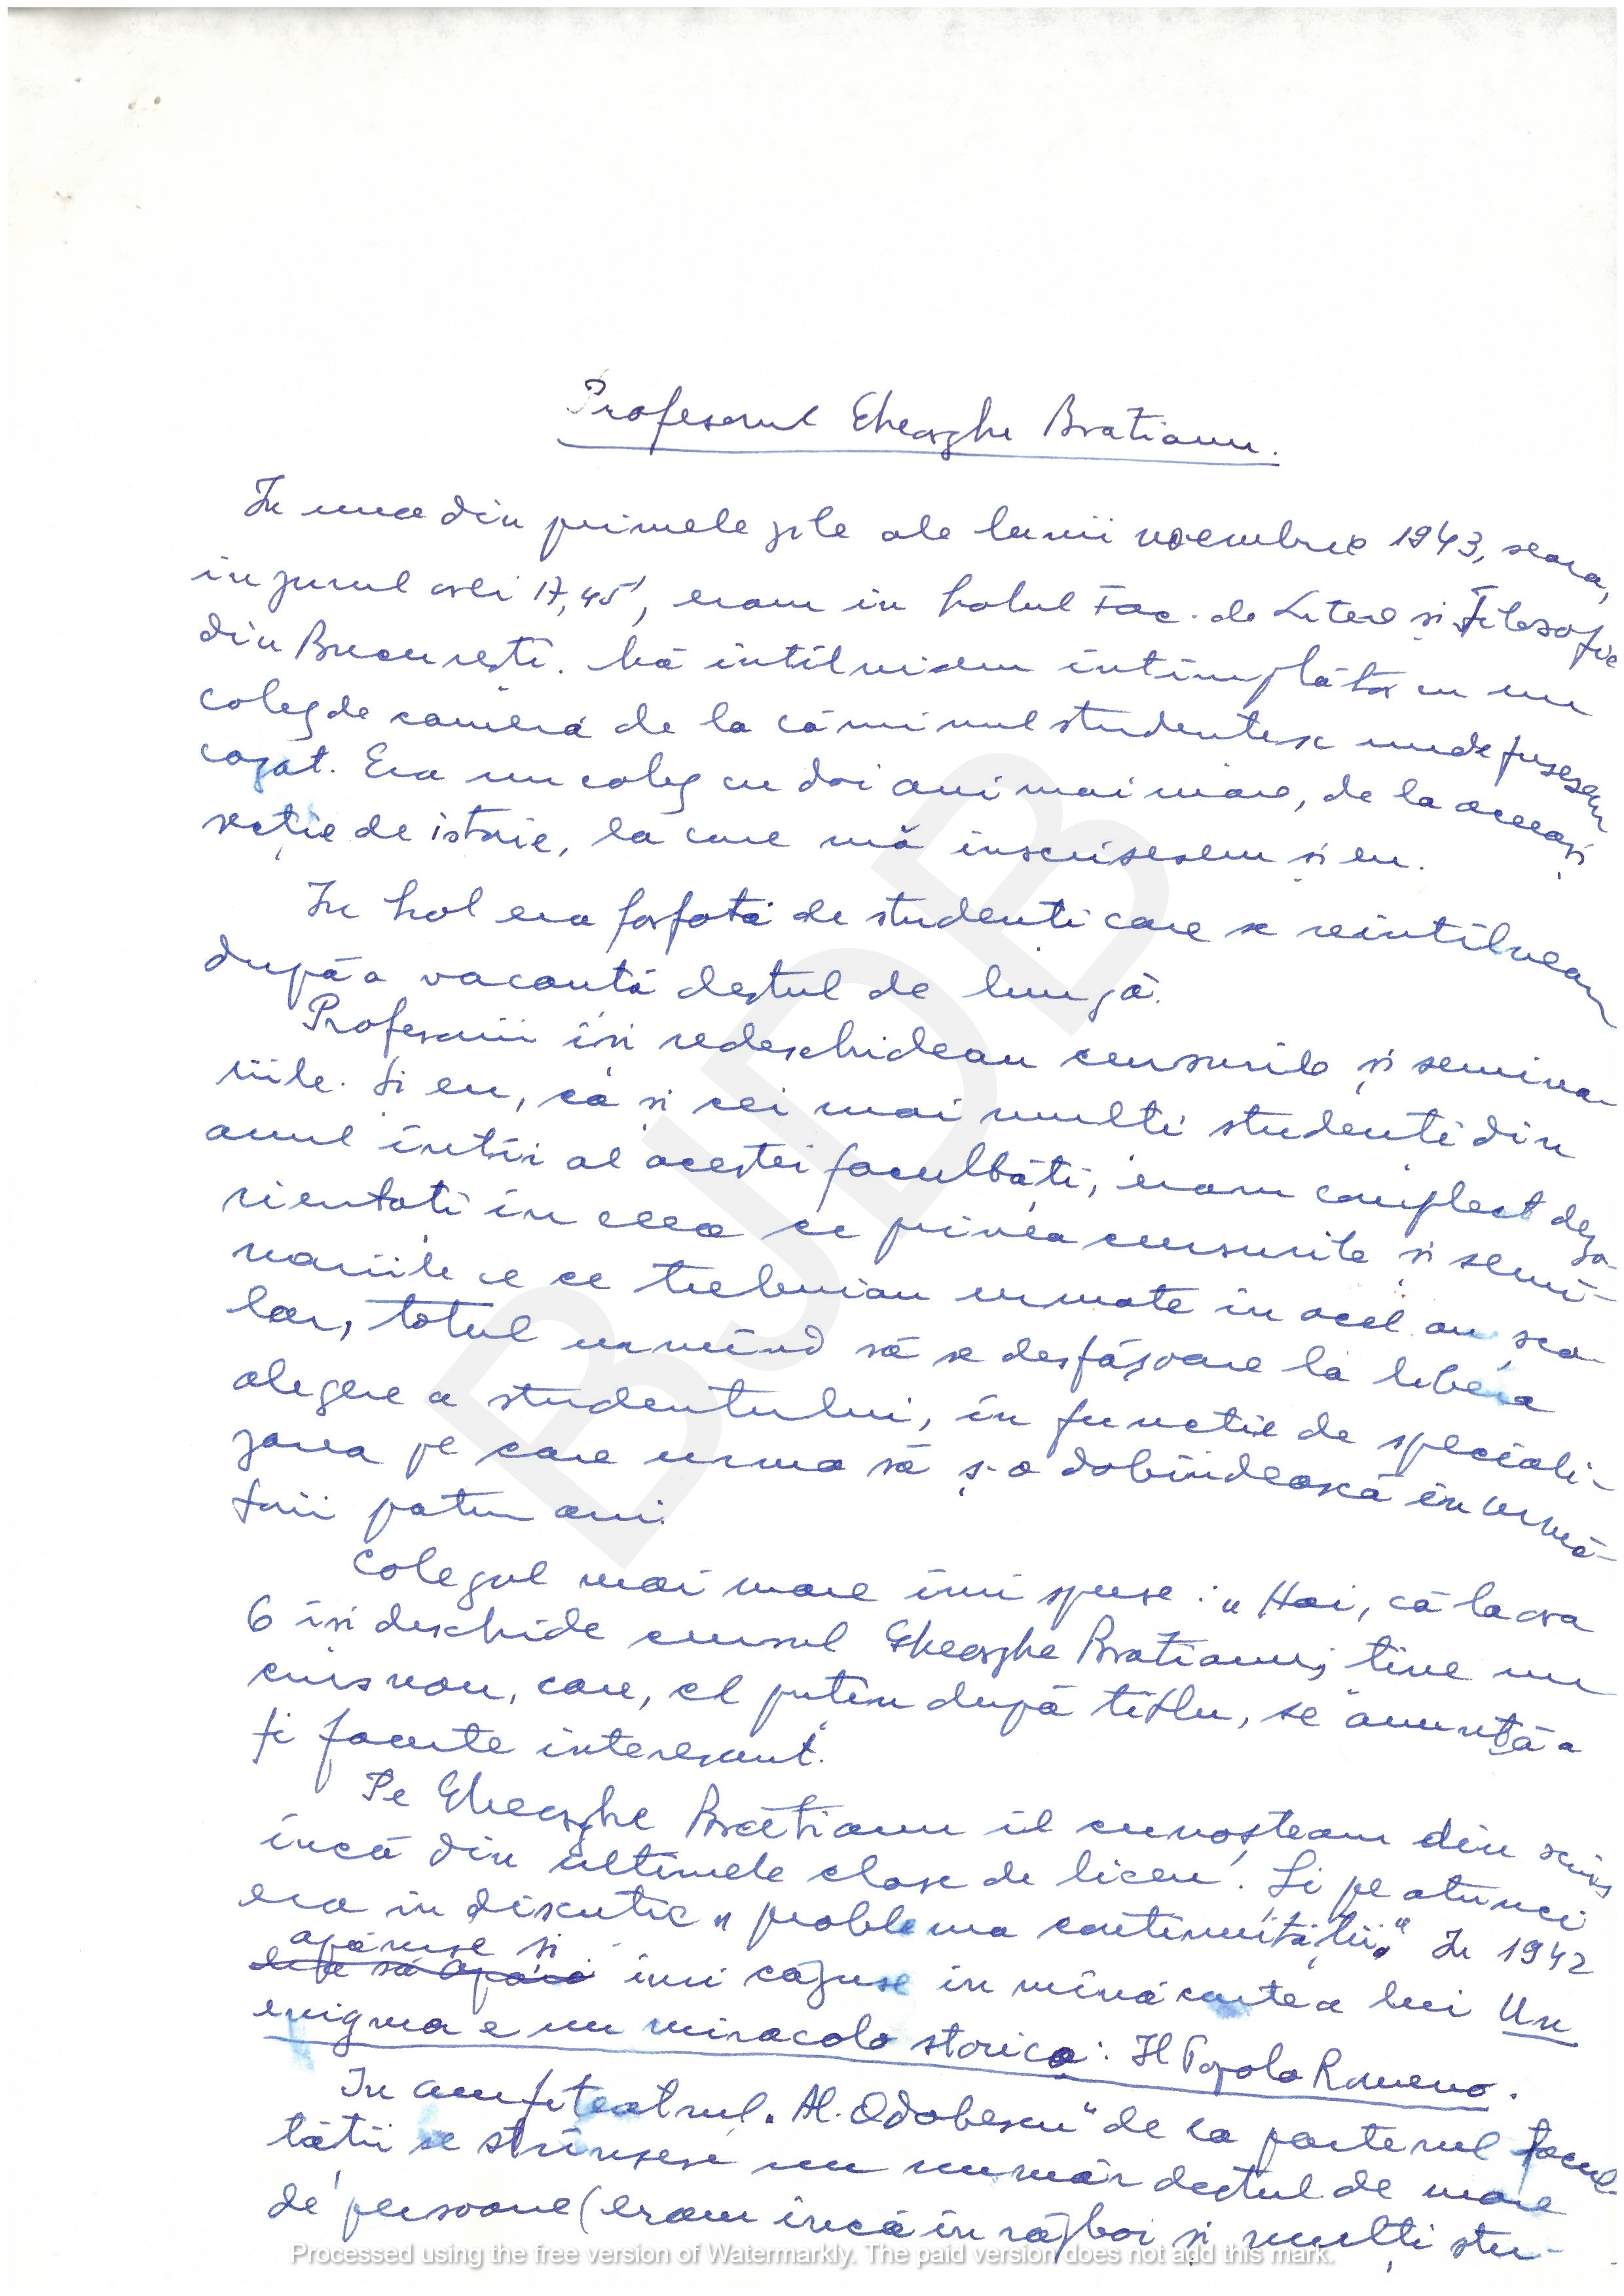 Profesorul Gheorghe Brătianu.
In una din primele zile ale lunii noembrie 1943, seara,
in jurul orei 17,45', eram in holul Fac. de Litere și Filosofie
din București. Mă intîlnisem intîmplător cu un
coleg de cameră de la căminul studentesc unde fusesem
cazat. Era un coleg cu doi ani mai mare, de la aceeași
secție de istorie, la care mă inscrisesem și eu.
In hol era forfotă de studenti care se reintîlneau
după o vacantă destul de lungă.
Profesorii își redeschideau cursurile și semina-
riile. Și eu, ca și cei mai multi studenti din
anul intîi al acestei facultăți, eram complect dezo-
rientati in ceea ce privea cursurile și semi-
nariile ce trebuiau urmate in acel an șco-
lar, totul urmînd să se desfășoare la libera
alegere a studentului, in functie de speciali-
zarea pe care urma să și-o dobîndească in urmă-
torii patru ani.
Colegul mai mare imi spuse: „Hai, că la ora
6 isi deschide cursul Gheorghe Brătianu; tine un
curs nou, care, cel putin după titlu, se anuntă a
fi foarte interesant."
Pe Gheorghe Brătianu il cunoșteam din scris
incă din ultimele clase de liceu. Și pe atunci
era in discutie „problema continuității". In 1942
apăruse și
imi căzuse in mină cartea lui Un
enigma e un miracolo storico: Il Popolo Rumeno.
In amfiteatrul „Al. Odobescu" de la parterul facul-
tății se strînsese un număr destul de mare
de persoane (eram incă in război și mulți stu-
BJDB
Processed using the free version of Watermarkly. The paid version does not add this mark.